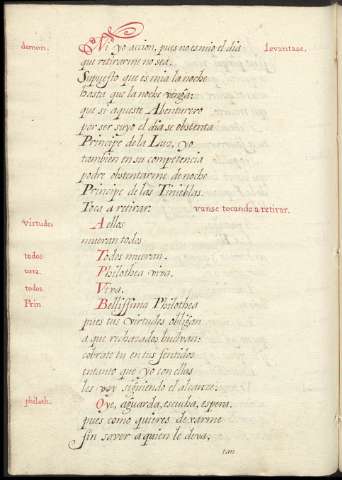 demon. Ni yo accion, pues no es mio el dia Levantase.
que retirarme no sea.
Supuesto que es mia la noche
hasta que la noche venga:
que si aqueste Abenturero
por ser suyo el dia se obstenta
Principe de la Luz, yo
tambien en su competencia
podre obstentarme de noche
Principe de las Tinieblas.
Toca a retirar: vanse tocando a retirar.
virtudes A ellos
mueran todos
todos Todos mueran.
Philothea viva.
todos Viva.
Prin. Bellissima Philothea
pues tus virtudes obligan
a que rechazados huellvan:
cobrate tu en tus sentidos
entanto que yo con ellos
les voy siguiendo el alcanze.
philoth. Oye, aguarda, escucha, espera.
pues como quieres dexarme
sin saver a quien le deva,
tan